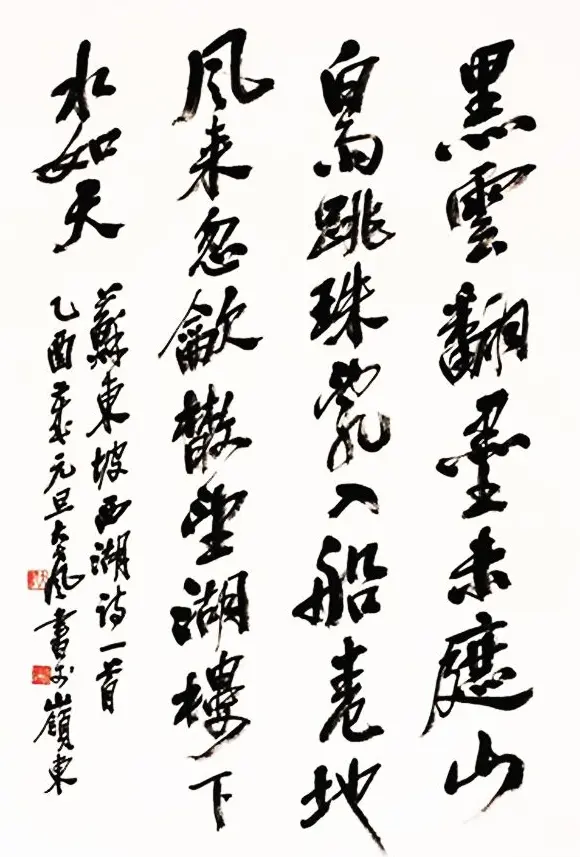 黑雲翻墨未遮山
白雨跳珠亂入船卷地
風来忽龡散望湖樓下
水如天
蘇東坡西湖诗一首
乙酉歲元旦大風書於嶺東